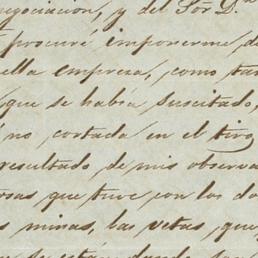 negociacion, y del Sor. D.n
procuré imponerme, de
ella empresa, como tam
que se habia suscitado,
no cortada en el tiro
resultado de mis observa
osas que tuve con los do
s minas, las vetas, que
se están dando por